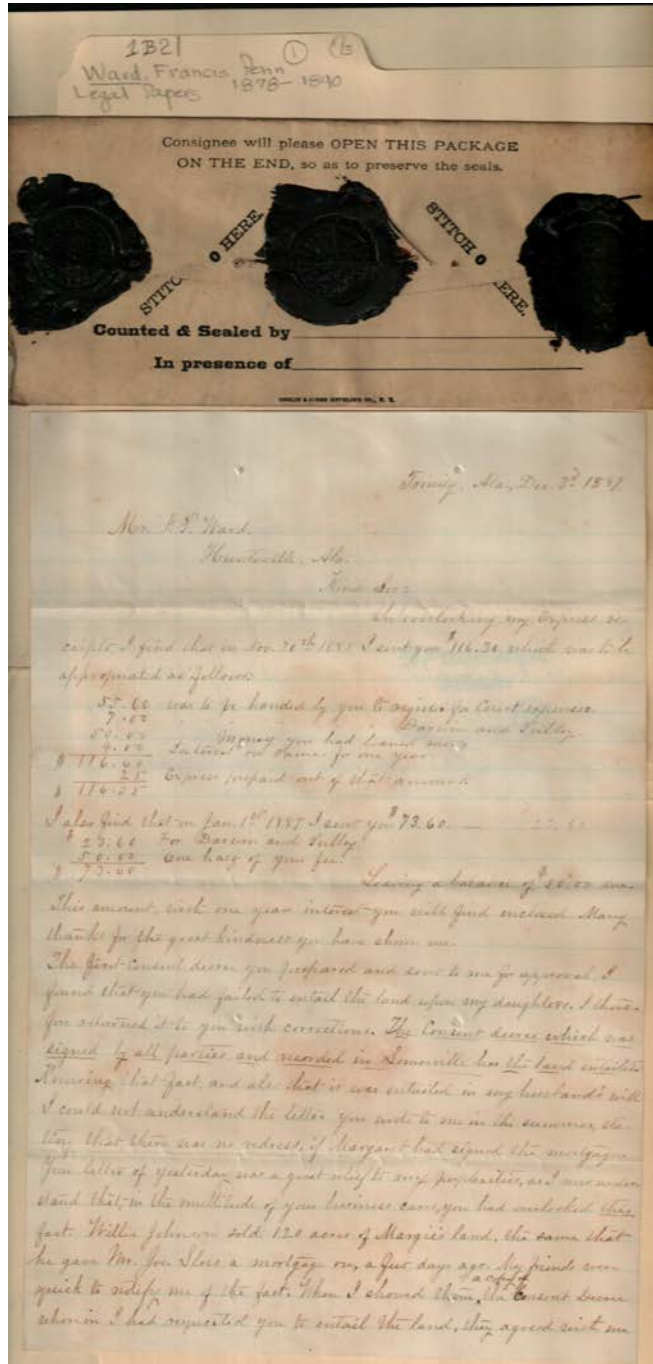 1B21 ①
Ward, Francis Penn
Legal Papers 1878-1890
Consignee will please OPEN THIS PACKAGE
ON THE END, so as to preserve the seals.
STITCH O HERE.
STITCH O HERE.
Counted & Sealed by
In presence of
Trinity, Ala, Dec. 3d 1887
Mr. F. P. Ward.
Huntsville, Ala.
Kind Sir:
In overlooking my Express re
ceipts I find that on Nov. 30th I sent you $116.30 which was to be
appropriated as follows:
55.00 was to be handed by you to register for Court expenses
7.00 Darwin and
50.00 Money you had loaned me
4.00 Interest on same for one year
25 Express prepaid out of that amount.
I also find that on Jan. 1st 1887 I sent you $73.60.
$23.60 For Darwin and
50.00 One half of your fee.
$73.60
Leaving a balance of $50.00 due.
This amount, with one year interest you will find enclosed. Many
thanks for the great kindness you have shown me.
The first consent decree you prepared and sent to me for approval, I
found that you had failed to entail the land upon my daughters. I there-
fore returned it to you with corrections. The Consent decree which was
signed by all parties and recorded in Somerville has the land entailed
Knowing that fact, and also that it was entailed in my husband's will
I could not understand the letter you wrote to me in the summer, sta-
ting that there was no redress, if Margaret had signed the mortgage
Your letter of yesterday was a great relief to my perplexities, as I now under
stand that, in the multitude of your business cares, you had overlooked this
fact. Willie Johnson sold 120 acres of Margie's land, the same that
he gave Mr. Joe Sloss a mortgage on, a few days ago. My friends were
quick to notify me of the fact. When I showed them, a copy of the Consent Decree
wherein I had requested you to entail the land, they agreed with me